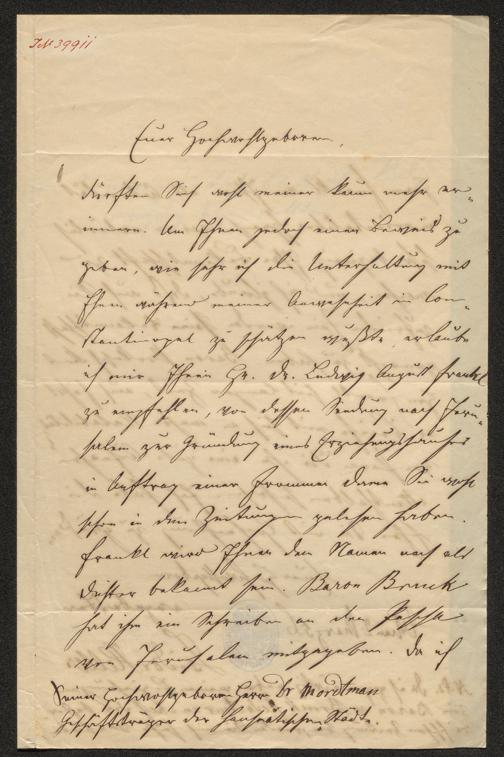 I.N. 39911
Euer Hochwohlgeboren,
dürften Sich wohl meiner kaum mehr er-
innern. Um Ihnen jedoch einen Beweis zu
geben, wie sehr ich die Unterhaltung mit
Ihnen während meiner Anwesenheit in Con-
stantinopel zu schätzen wußte, erlaube
ich mir Ihnen Hr. Dr. Ludwig August Frankl
zu empfehlen, von dessen Sendung nach Jeru-
salem zur Gründung eines Erziehungshauses
in Auftrag einer frommen Dame Sie wohl
schon in den Zeitungen gelesen haben.
Frankl wird Ihnen dem Namen nach als
Dichter bekannt sein. Baron Bruck
hat ihm ein Schreiben an den Pascha
von Jerusalem mitgegeben. Da ich
Seiner Hochwohlgeboren Herrn Dr Mordtman
Geschäftsträger der hanseatischen Städte.